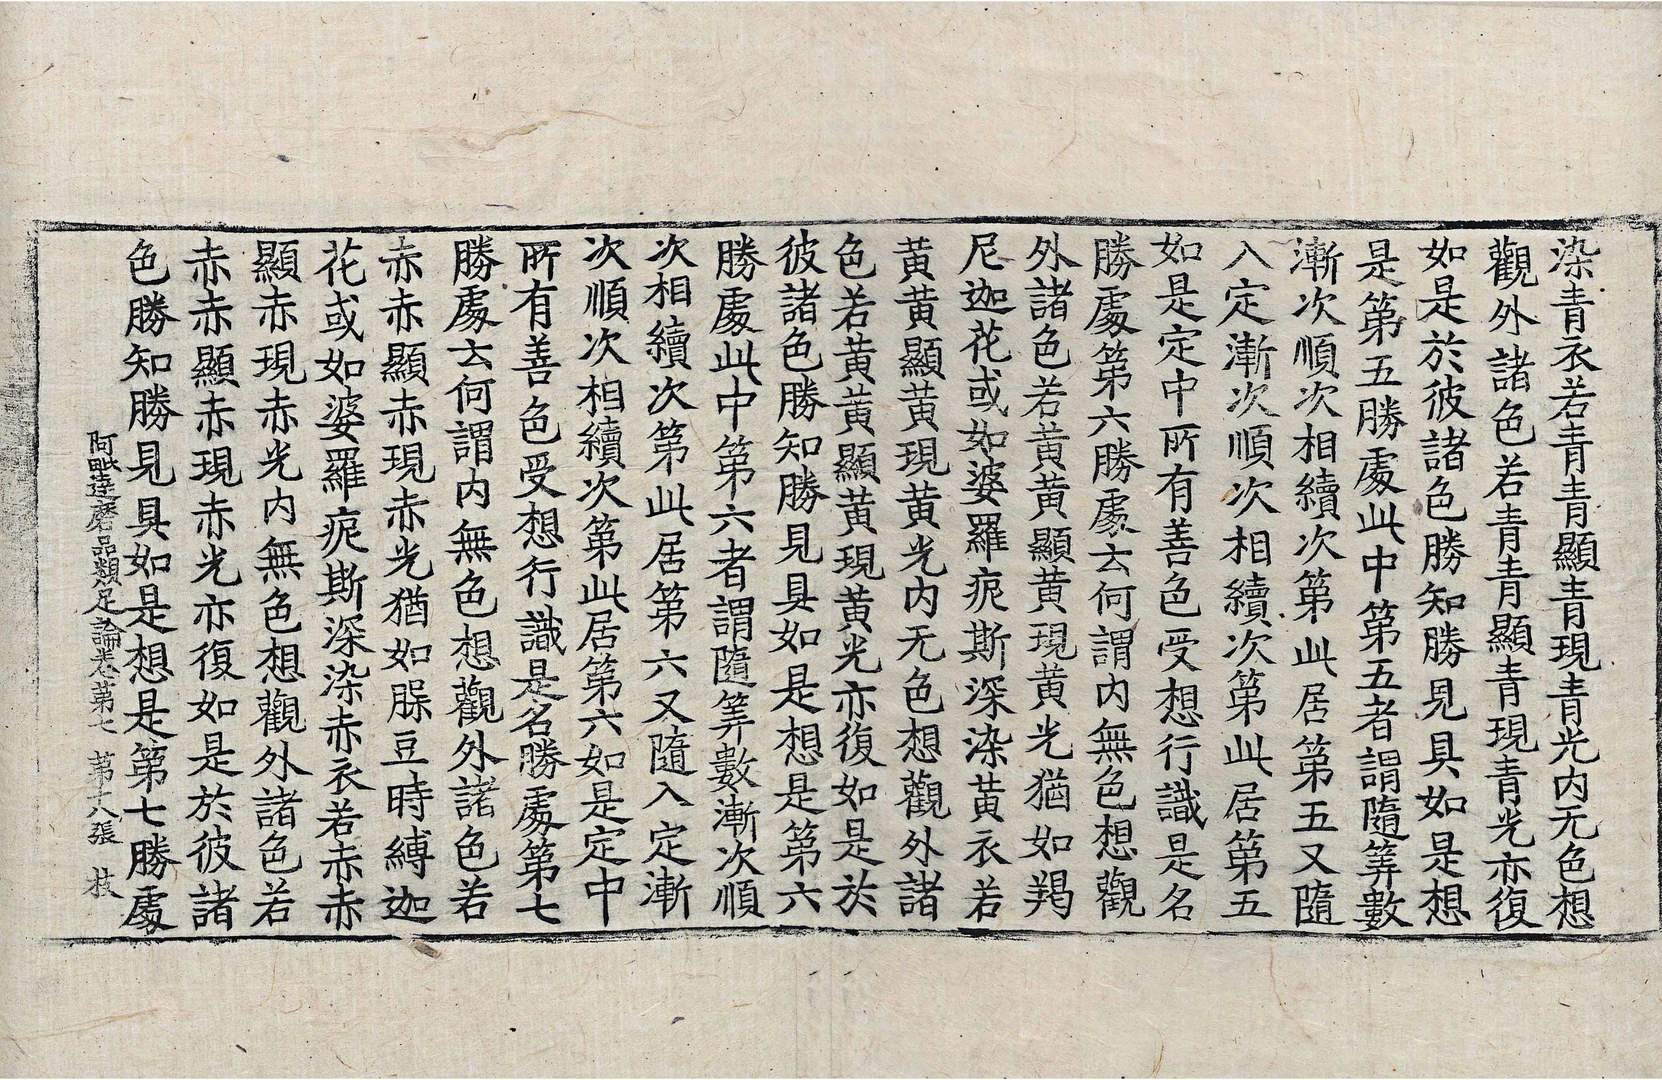 染青衣若青青顯青現青光内无色想
觀外諸色若青青顯青現青光亦復
如是於彼諸色勝知勝見具如是想
是第五勝處此中第五者謂隨筭數
漸次順次相續次第此居第五又隨
入定漸次順次相續次第此居第五
如是定中所有善色受想行識是名
勝處第六勝處云何謂内無色想觀
外諸色若黄黄顯黄現黄光猶如羯
尼迦花或如婆羅痆斯深染黄衣若
黄黄顯黄現黄光内无色想觀外諸
色若黄黄顯黄現黄光亦復如是於
彼諸色勝知勝見具如是想是第六
勝處此中第六者謂隨筭數漸次順
次相續次第此居第六又隨入定漸
次順次相續次第此居第六如是定中
所有善色受想行識是名勝處第七
勝處云何謂内無色想觀外諸色若
赤赤顯赤現赤光猶如𦡀豆時縛迦
花或如婆羅痆斯深染赤衣若赤赤
顯赤現赤光内無色想觀外諸色若
赤赤顯赤現赤光亦復如是於彼諸
色勝知勝見具如是想是第七勝處
阿毗達磨品類足論卷第七 第十八張 枝